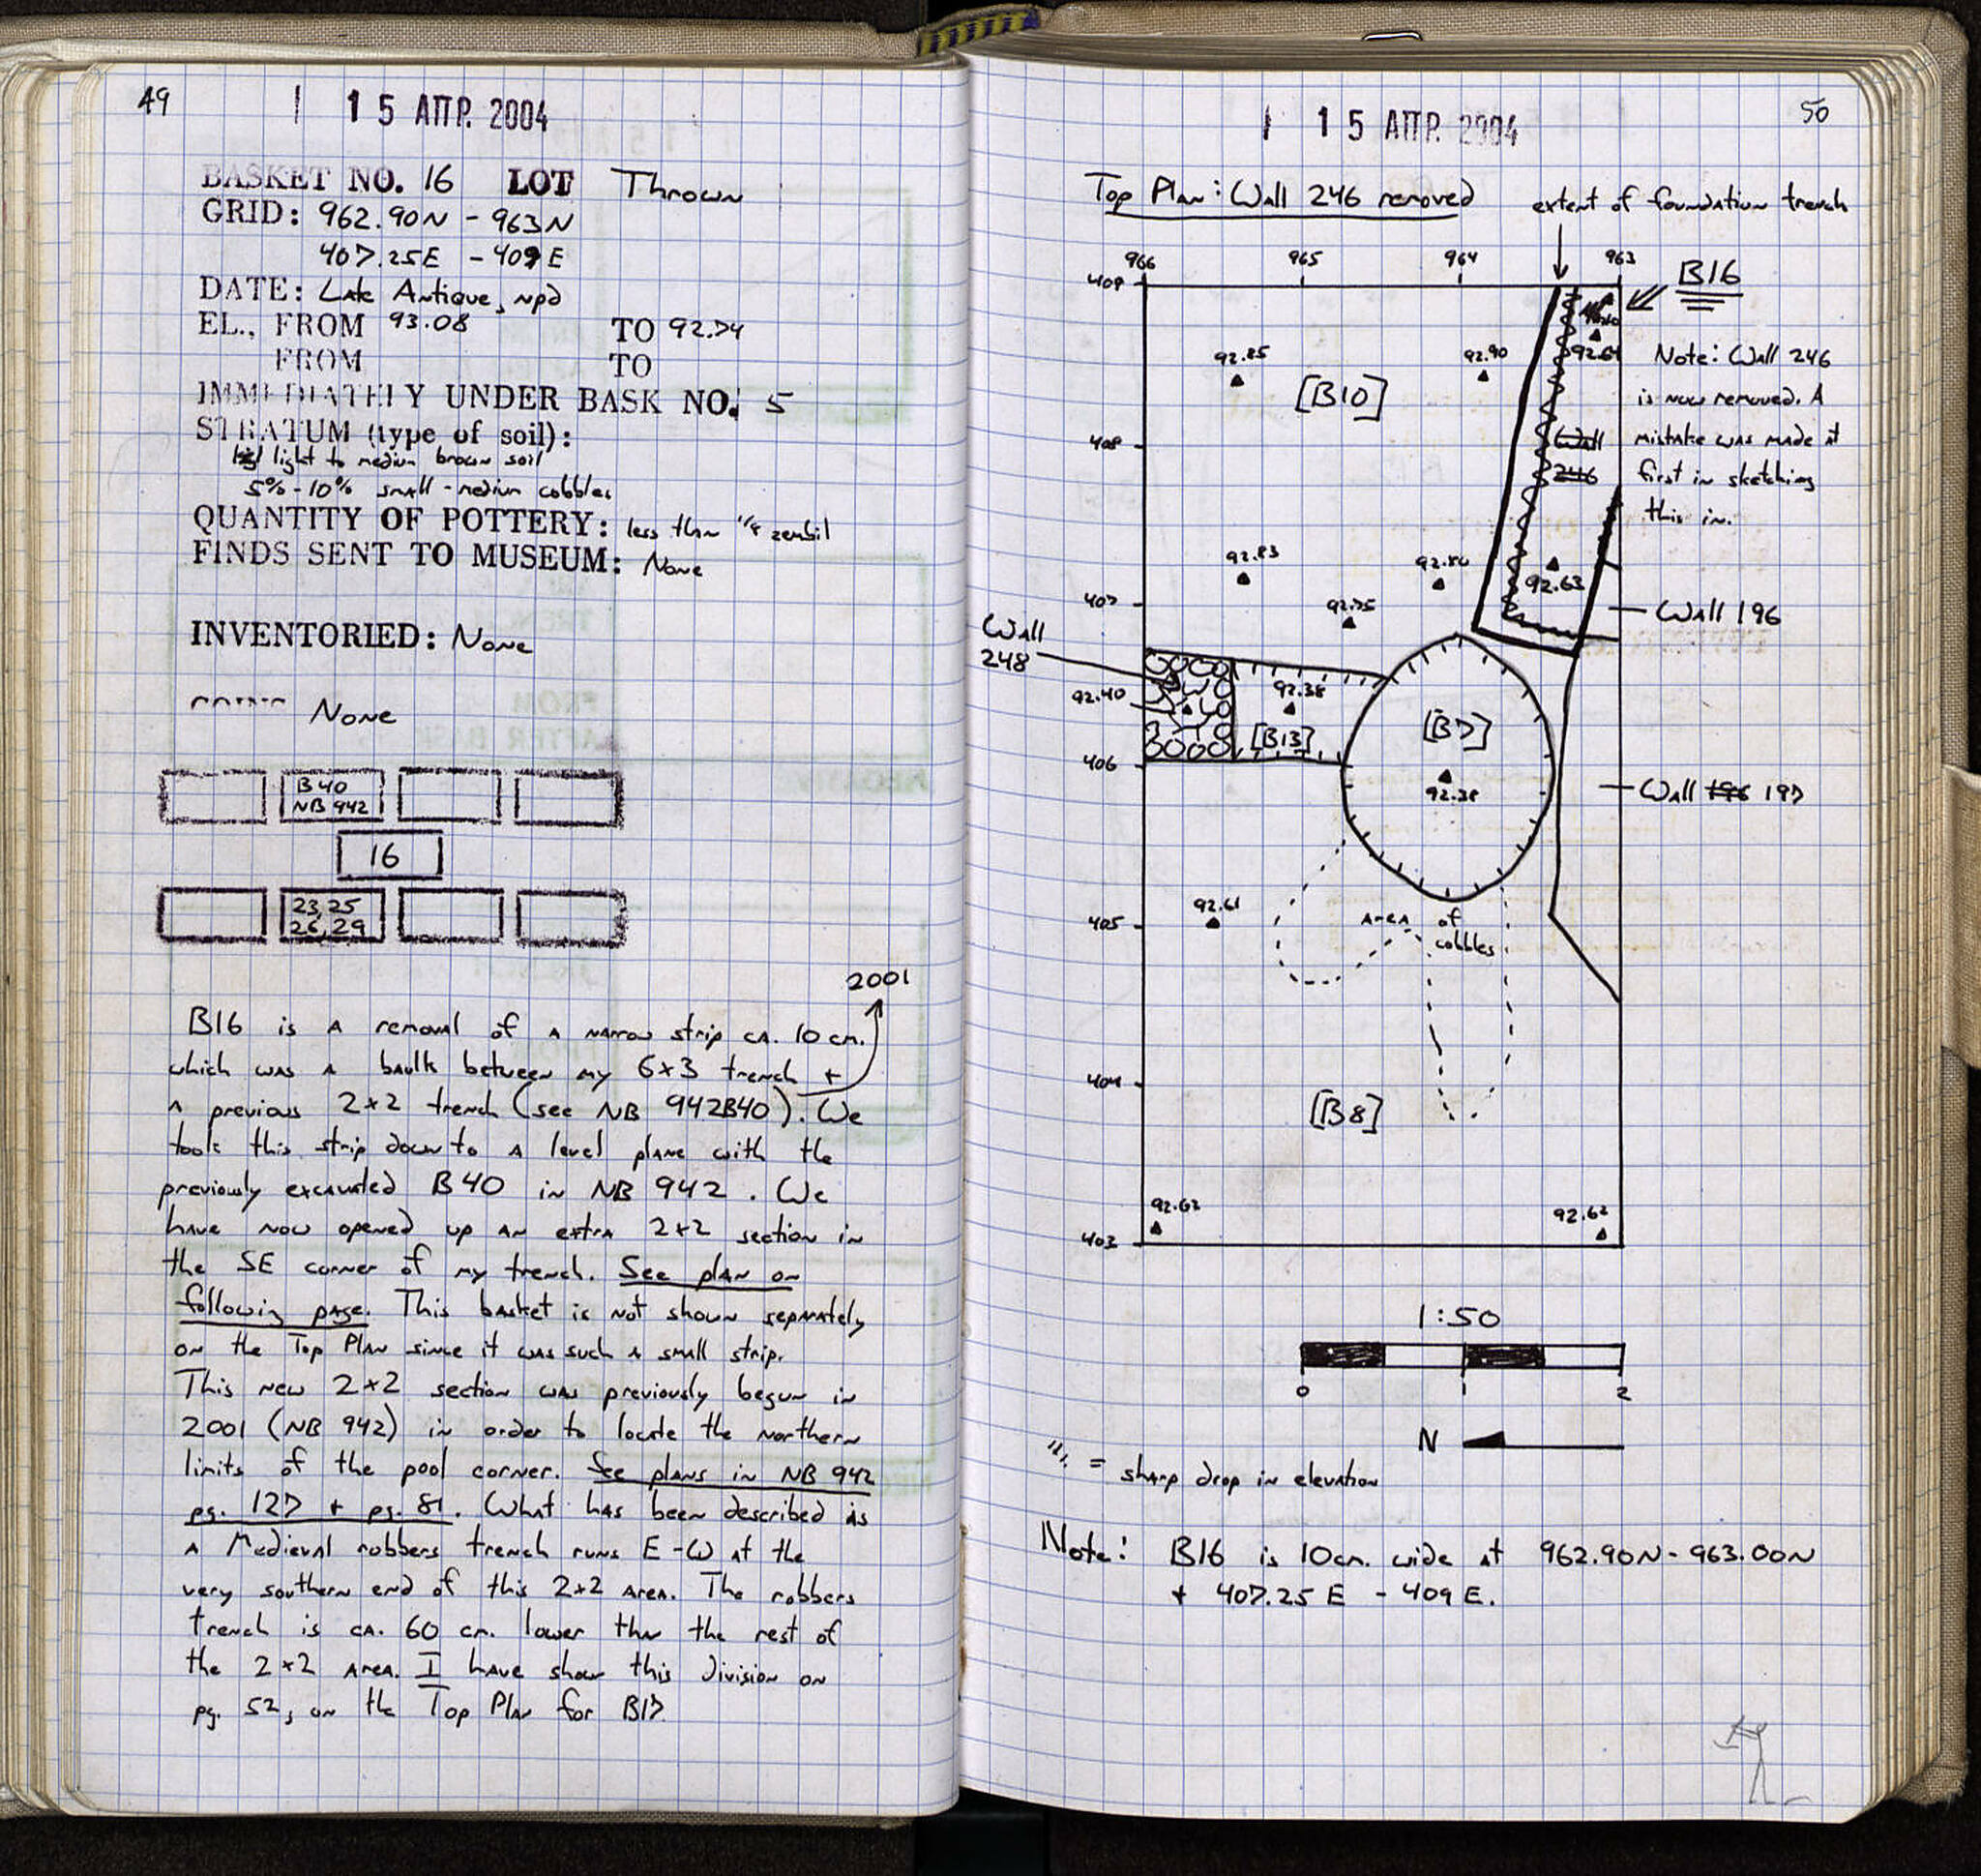 49
1 5 ΑΠΡ. 2004
BASKET NO. 16 LOT Thrown
GRID: 962.90N - 963N
407.25E - 409E
DATE: Late Antique, npd
EL., FROM 93.08 TO 92.74
FROM TO
IMMEDIATELY UNDER BASK NO. 5
STRATUM (type of soil):
light to medium brown soil
5%-10% small-medium cobbles
QUANTITY OF POTTERY: less than 1/4 zembil
FINDS SENT TO MUSEUM: None
INVENTORIED: None
None
B40
NB 942
16
23, 25
26, 29
2001
B16 is a removal of a narrow strip ca. 10 cm.
which was a baulk between my 6x3 trench +
a previous 2x2 trench (see NB 942B40). We
took this strip down to a level plane with the
previously excavated B40 in NB 942. We
have now opened up an extra 2x2 section in
the SE corner of my trench. See plan on
following page. This basket is not shown separately
on the Top Plan since it was such a small strip.
This new 2x2 section was previously begun in
2001 (NB 942) in order to locate the northern
limits of the pool corner. See plans in NB 942
pg. 127 + pg. 81. What has been described as
a Medieval robbers trench runs E-W at the
very southern end of this 2x2 area. The robbers
trench is ca. 60 cm. lower than the rest of
the 2x2 area. I have show this division on
pg. 52, on the Top Plan for B17
50
1 5 ΑΠΡ. 2004
Top Plan: Wall 246 removed
extent of foundation trench
966 965 964 963
409
B16
92.85
92.90
92.64
[B10]
Note: Wall 246
is now removed. A
mistake was made at
first in sketching
this in.
408
Wall
246
92.83
92.80
92.63
92.75
407
Wall 196
Wall
248
92.40
92.38
[B13]
[B7]
92.38
406
Wall 196 197
92.61
405
area of
cobbles
404
[B8]
92.62
92.62
403
1:50
0 1 2
N
= sharp drop in elevation
Note: B16 is 10cm. wide at 962.90N - 963.00N
+ 407.25 E - 409 E.